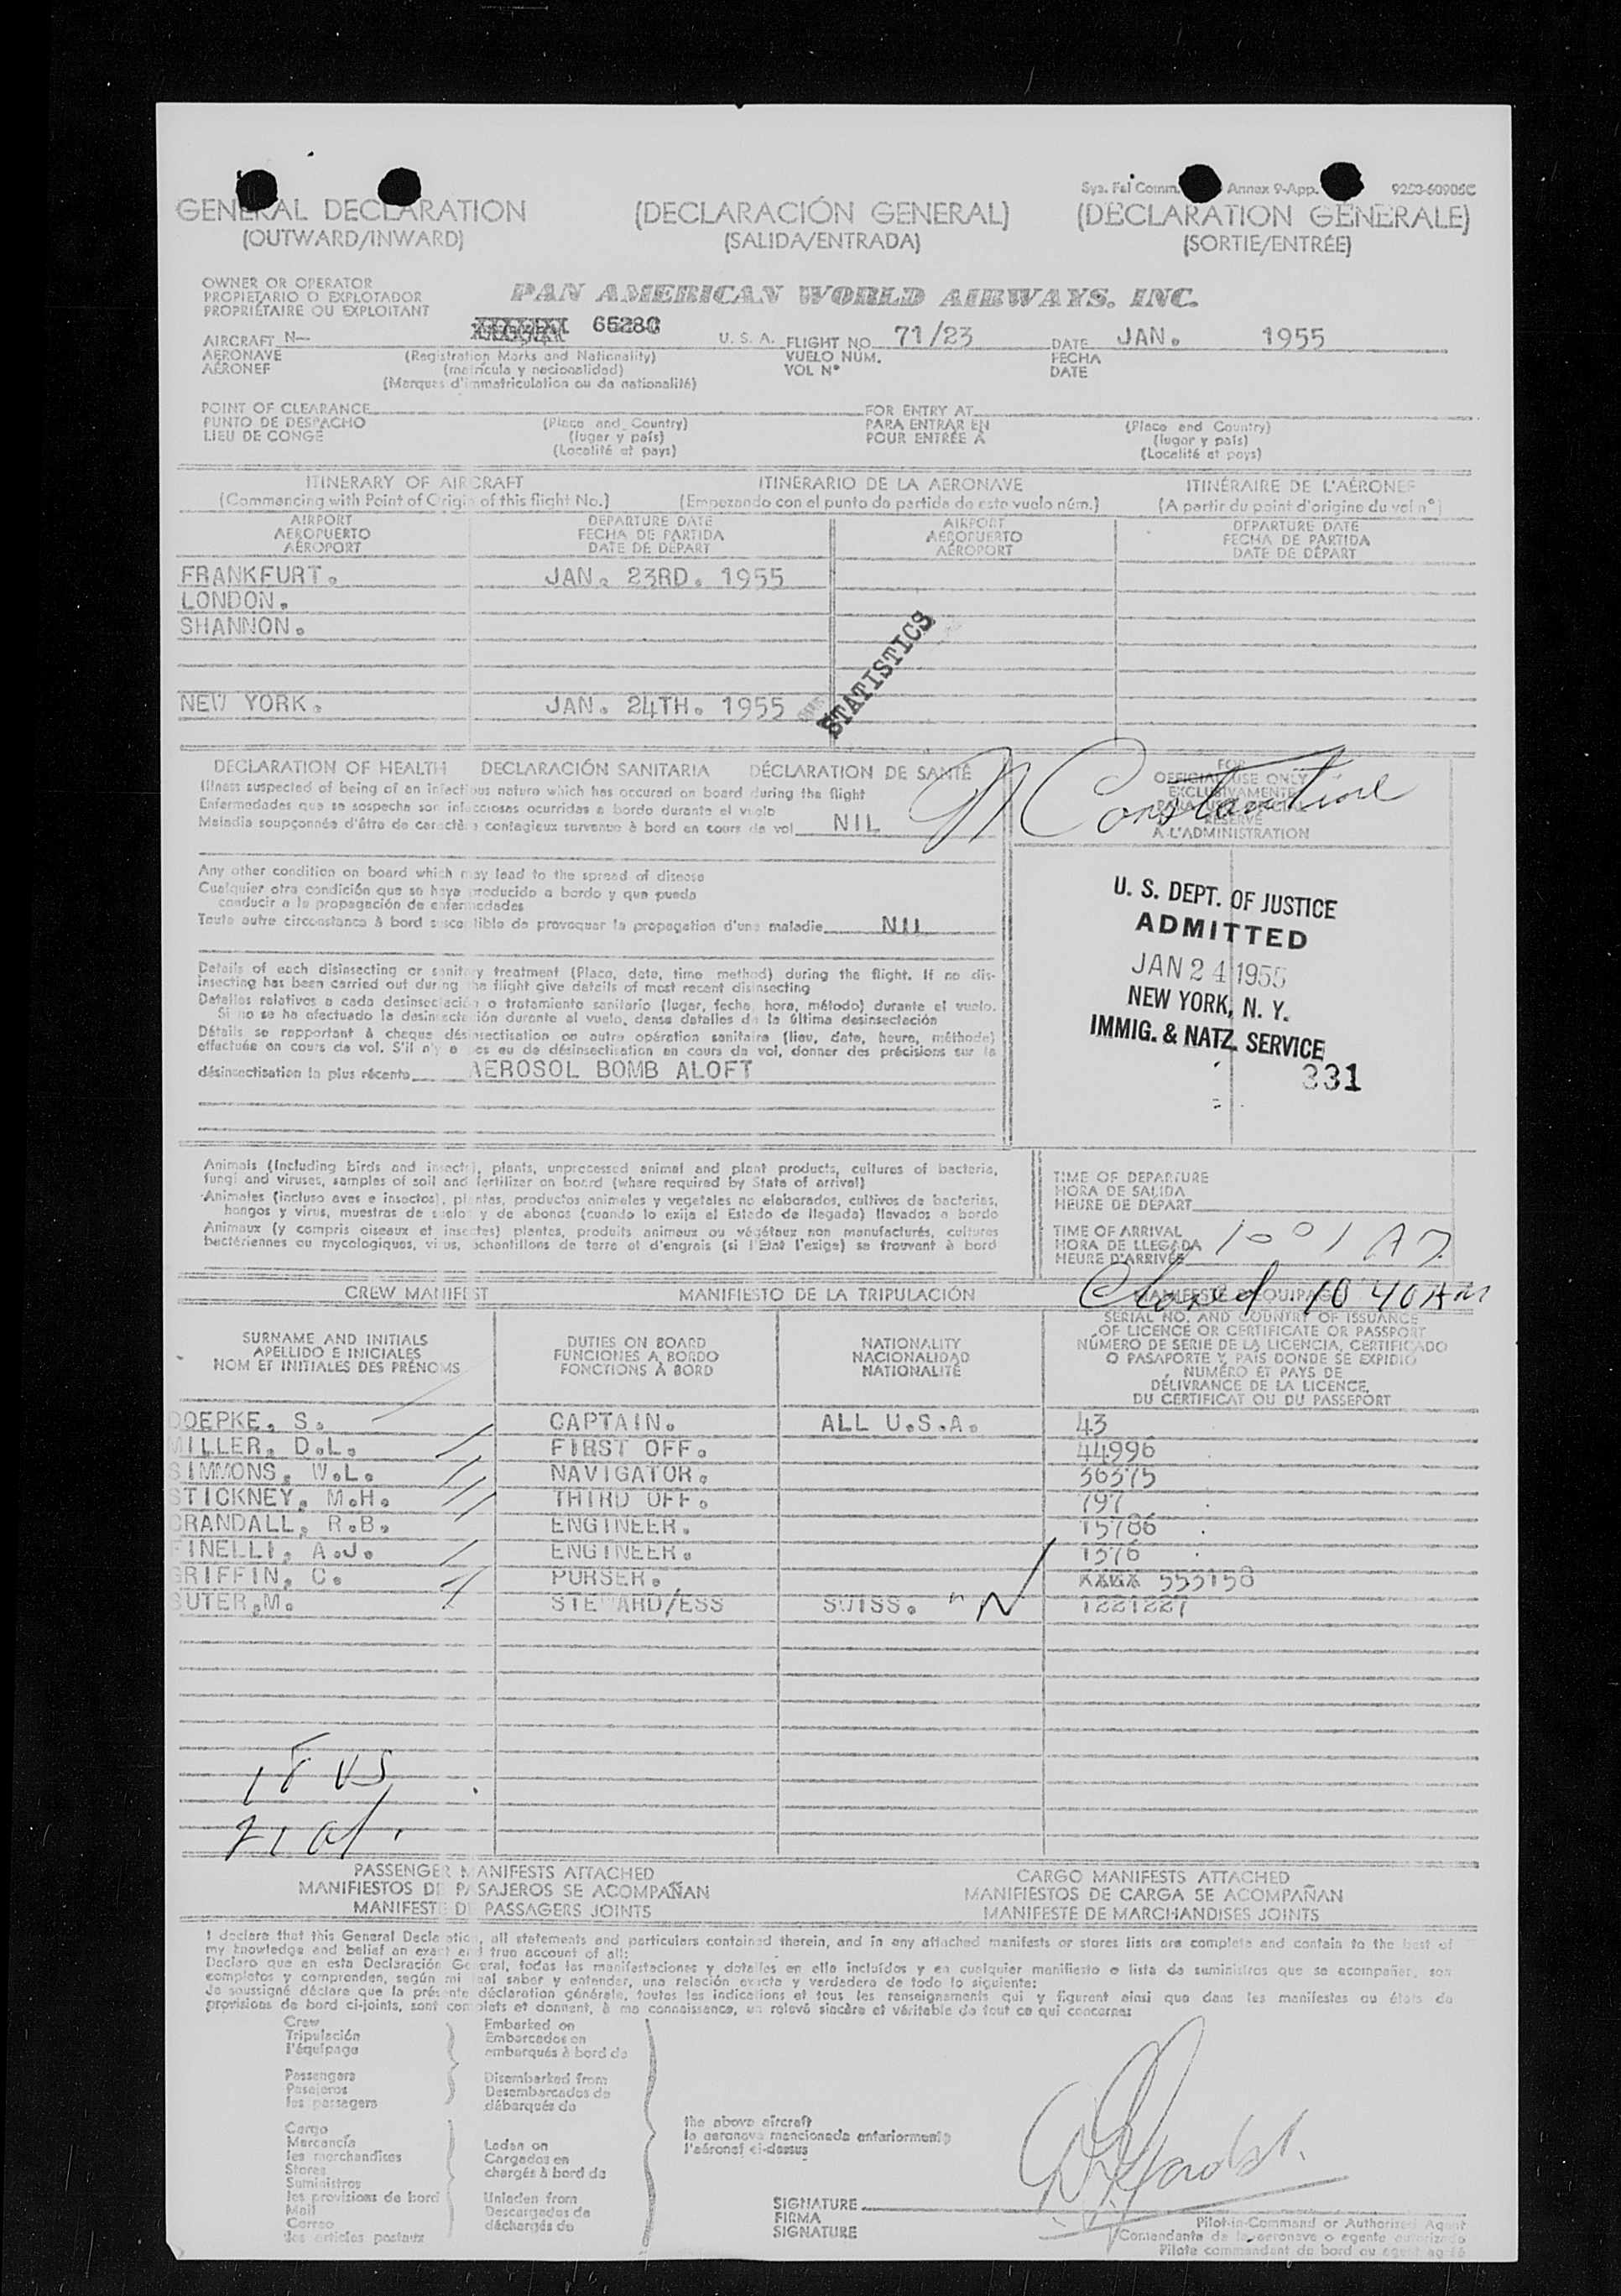 Sys. Fal Comm. Annex 9-App. 9253-60905C
GENERAL DECLARATION (DECLARACIÓN GENERAL) (DÉCLARATION GÉNÉRALE)
(OUTWARD/INWARD) (SALIDA/ENTRADA) (SORTIE/ENTRÉE)
OWNER OR OPERATOR
PROPIETARIO O EXPLOTADOR
PROPRIÉTAIRE OU EXPLOITANT
PAN AMERICAN WORLD AIRWAYS, INC.
AIRCRAFT N— 6528C U. S. A. FLIGHT NO. 71/23 DATE JAN. 1955
AERONAVE (Registration Marks and Nationality) VUELO NÚM. FECHA
AÉRONEF (matrícula y nacionalidad) VOL Nº DATE
(Marques d'immatriculation ou de nationalité)
POINT OF CLEARANCE FOR ENTRY AT
PUNTO DE DESPACHO (Place and Country) PARA ENTRAR EN (Place and Country)
LIEU DE CONGÉ (lugar y país) POUR ENTRÉE À (lugar y país)
(Localité et pays) (Localité et pays)
ITINERARY OF AIRCRAFT ITINERARIO DE LA AERONAVE ITINÉRAIRE DE L'AÉRONEF
(Commencing with Point of Origin of this flight No.) (Empezando con el punto de partida de este vuelo núm.) (A partir du point d'origine du vol nº)
AIRPORT DEPARTURE DATE AIRPORT DEPARTURE DATE
AEROPUERTO FECHA DE PARTIDA AEROPUERTO FECHA DE PARTIDA
AÉROPORT DATE DE DÉPART AÉROPORT DATE DE DÉPART
FRANKFURT. JAN. 23RD. 1955
LONDON.
SHANNON.
NEW YORK. JAN. 24TH. 1955
STATISTICS
DECLARATION OF HEALTH DECLARACIÓN SANITARIA DÉCLARATION DE SANTÉ
Illness suspected of being of an infectious nature which has occured on board during the flight
Enfermedades que se sospecha son infecciosas ocurridas a bordo durante el vuelo
Maladie soupçonnée d'être de caractère contagieux survenue à bord en cours de vol NIL
FOR
OFFICIAL USE ONLY
EXCLUSIVAMENTE
PARA USO OFICIAL
RÉSERVÉ
A L'ADMINISTRATION
N Constantine
Any other condition on board which may lead to the spread of disease
Cualquier otra condición que se haya producido a bordo y que pueda
conducir a la propagación de enfermedades
Toute autre circonstance à bord susceptible de provoquer la propagation d'une maladie NIL
U. S. DEPT. OF JUSTICE
ADMITTED
JAN 24 1955
NEW YORK, N. Y.
IMMIG. & NATZ. SERVICE
331
Details of each disinsecting or sanitary treatment (Place, date, time method) during the flight. If no dis-
insecting has been carried out during the flight give details of most recent disinsecting
Detalles relativos a cada desinsectación o tratamiento sanitario (lugar, fecha, hora, método) durante el vuelo.
Si no se ha efectuado la desinsectación durante el vuelo, dense detalles de la última desinsectación
Détails se rapportant à chaque désinsectisation ou autre opération sanitaire (lieu, date, heure, méthode)
effectuée en cours de vol. S'il n'y a pas eu de désinsectisation en cours de vol, donner des précisions sur la
désinsectisation la plus récente AEROSOL BOMB ALOFT
Animals (Including birds and insects), plants, unprocessed animal and plant products, cultures of bacteria,
fungi and viruses, samples of soil and fertilizer on board (where required by State of arrival)
Animales (incluso aves e insectos), plantas, productos animales y vegetales no elaborados, cultivos de bacterias,
hongos y virus, muestras de suelos y de abonos (cuando lo exija el Estado de llegada) llevados a bordo
Animaux (y compris oiseaux et insectes) plantes, produits animaux ou végétaux non manufacturés, cultures
bactériennes ou mycologiques, virus, échantillons de terre et d'engrais (si l'État l'exige) se trouvant à bord
TIME OF DEPARTURE
HORA DE SALIDA
HEURE DE DÉPART
TIME OF ARRIVAL
HORA DE LLEGADA
HEURE D'ARRIVÉE
Closed 10 40 AM
CREW MANIFEST MANIFIESTO DE LA TRIPULACIÓN
SURNAME AND INITIALS DUTIES ON BOARD NATIONALITY
APELLIDO E INICIALES FUNCIONES A BORDO NACIONALIDAD
NOM ET INITIALES DES PRÉNOMS FONCTIONS À BORD NATIONALITÉ
SERIAL NO. AND COUNTRY OF ISSUANCE
OF LICENCE OR CERTIFICATE OR PASSPORT
NÚMERO DE SERIE DE LA LICENCIA, CERTIFICADO
O PASAPORTE Y PAÍS DONDE SE EXPIDIÓ
NUMÉRO ET PAYS DE
DÉLIVRANCE DE LA LICENCE,
DU CERTIFICAT OU DU PASSEPORT
DOEPKE, S. CAPTAIN. ALL U.S.A. 43
MILLER, D.L. FIRST OFF. 44996
SIMMONS, W.L. NAVIGATOR. 36375
STICKNEY, M.H. THIRD OFF. 797
CRANDALL, R.B. ENGINEER. 15786
FINELLI, A.J. ENGINEER. 1376
GRIFFIN, C. PURSER. 553158
SUTER,M. STEWARD/ESS SWISS. 1221227
PASSENGER MANIFESTS ATTACHED CARGO MANIFESTS ATTACHED
MANIFIESTOS DE PASAJEROS SE ACOMPAÑAN MANIFIESTOS DE CARGA SE ACOMPAÑAN
MANIFESTE DE PASSAGERS JOINTS MANIFESTE DE MARCHANDISES JOINTS
I declare that this General Declaration, all statements and particulars contained therein, and in any attached manifests or stores lists are complete and contain to the best of
my knowledge and belief an exact and true account of all:
Declaro que en esta Declaración General, todas las manifestaciones y detalles en ella incluidos y en cualquier manifiesto o lista de suministros que se acompañen, son
completos y comprenden, según mi leal saber y entender, una relación exacta y verdadera de todo lo siguiente:
Je soussigné déclare que la présente déclaration générale, toutes les indications et tous les renseignements qui y figurent ainsi que dans les manifestes ou états de
provisions de bord ci-joints, sont complets et donnent, à ma connaissance, un relevé sincère et véritable de tout ce qui concerne:
Crew Embarked on
Tripulación Embarcados en
l'équipage embarqués à bord de
Passengers Disembarked from
Pasajeros Desembarcados de
les passagers débarqués de
the above aircraft
la aeronave mencionada anteriormente
l'aéronef ci-dessus
Cargo
Mercancía Laden on
les marchandises Cargados en
Stores chargés à bord de
Suministros
les provisions de bord Unladen from
Mail Descargados de
Correo déchargés de
les articles postaux
SIGNATURE
FIRMA
SIGNATURE
Pilot-in-Command or Authorised Agent
Comandante de la aeronave o agente autorizado
Pilote commandant de bord ou agent agréé